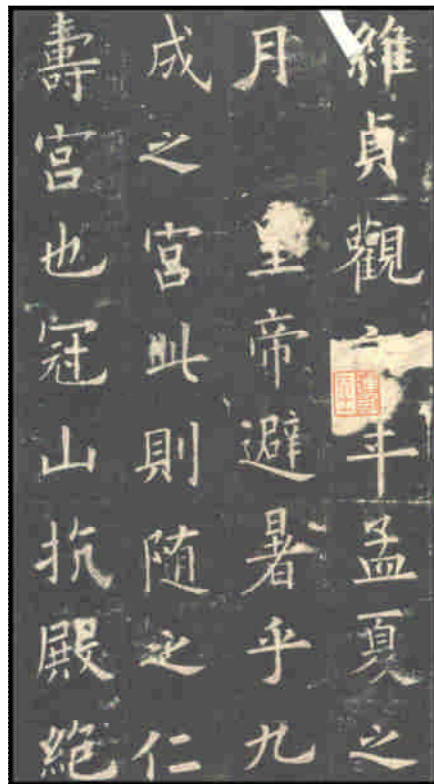 維貞觀年孟夏之
月 皇帝避暑乎九
成之宮此則随之仁
壽宮也冠山抗殿絕